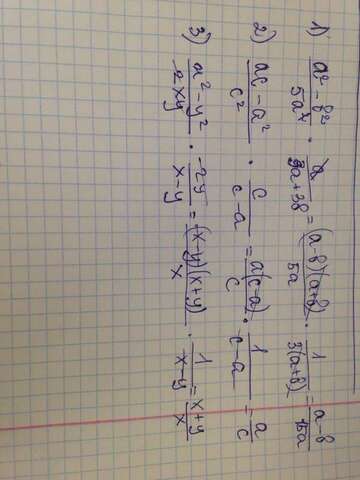 1) (a² - b²)/5a² · a/(3a + 3b) = (a-b)(a+b)/5a · 1/3(a+b) = (a-b)/15a
2) (ac - a²)/c² · c/(c-a) = a(c-a)/c · 1/(c-a) = a/c
3) (x² - y²)/(-2xy) · -2y/(x-y) = (x-y)(x+y)/x · 1/(x-y) = (x+y)/x